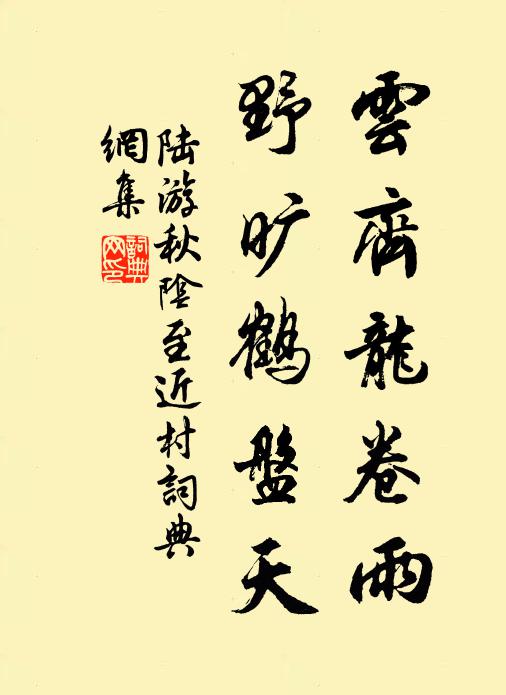 雲齊龍卷雨
野旷鶴盤天
陆游秋陰至近村詞典
網集
詞典
网印